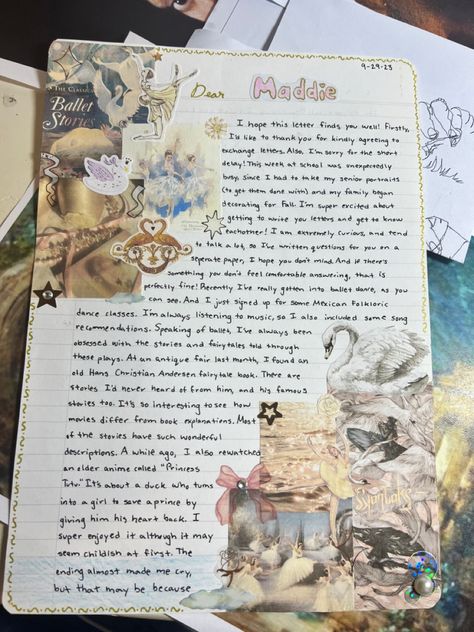 9-29-23
THE CLASSICAL
Ballet
Stories
Dear Maddie
I hope this letter finds you well! Firstly,
I'd like to thank you for kindly agreeing to
exchange letters. Also, I'm sorry for the short
delay! This week at school was unexpectedly
busy, since I had to take my senior portraits
(to get them done with) and my family began
decorating for Fall. I'm super excited about
getting to write you letters and get to know
eachother! I am extremely curious, and tend
to talk a lot, so I've written questions for you on a
seperate paper, I hope you don't mind. And if there's
something you don't feel comfortable answering, that is
perfectly fine! Recently I've really gotten into ballet dance, as you
can see. And I just signed up for some Mexican Folkloric
dance classes. I'm always listening to music, so I also included some song
recommendations. Speaking of ballet, I've always been
obsessed with the stories and fairytales told through
these plays. At an antique fair last month, I found an
old Hans Christian Andersen fairytale book. There are
stories I'd never heard of from him, and his famous
stories too. It's so interesting to see how
movies differ from book explanations. Most
of the stories have such wonderful
descriptions. A while ago, I also rewatched
an older anime called "Princess
Tutu." It's about a duck who turns
into a girl to save a prince by
giving him his heart back. I
super enjoyed it although it may
seem childish at first. The
ending almost made me cry,
but that may be because